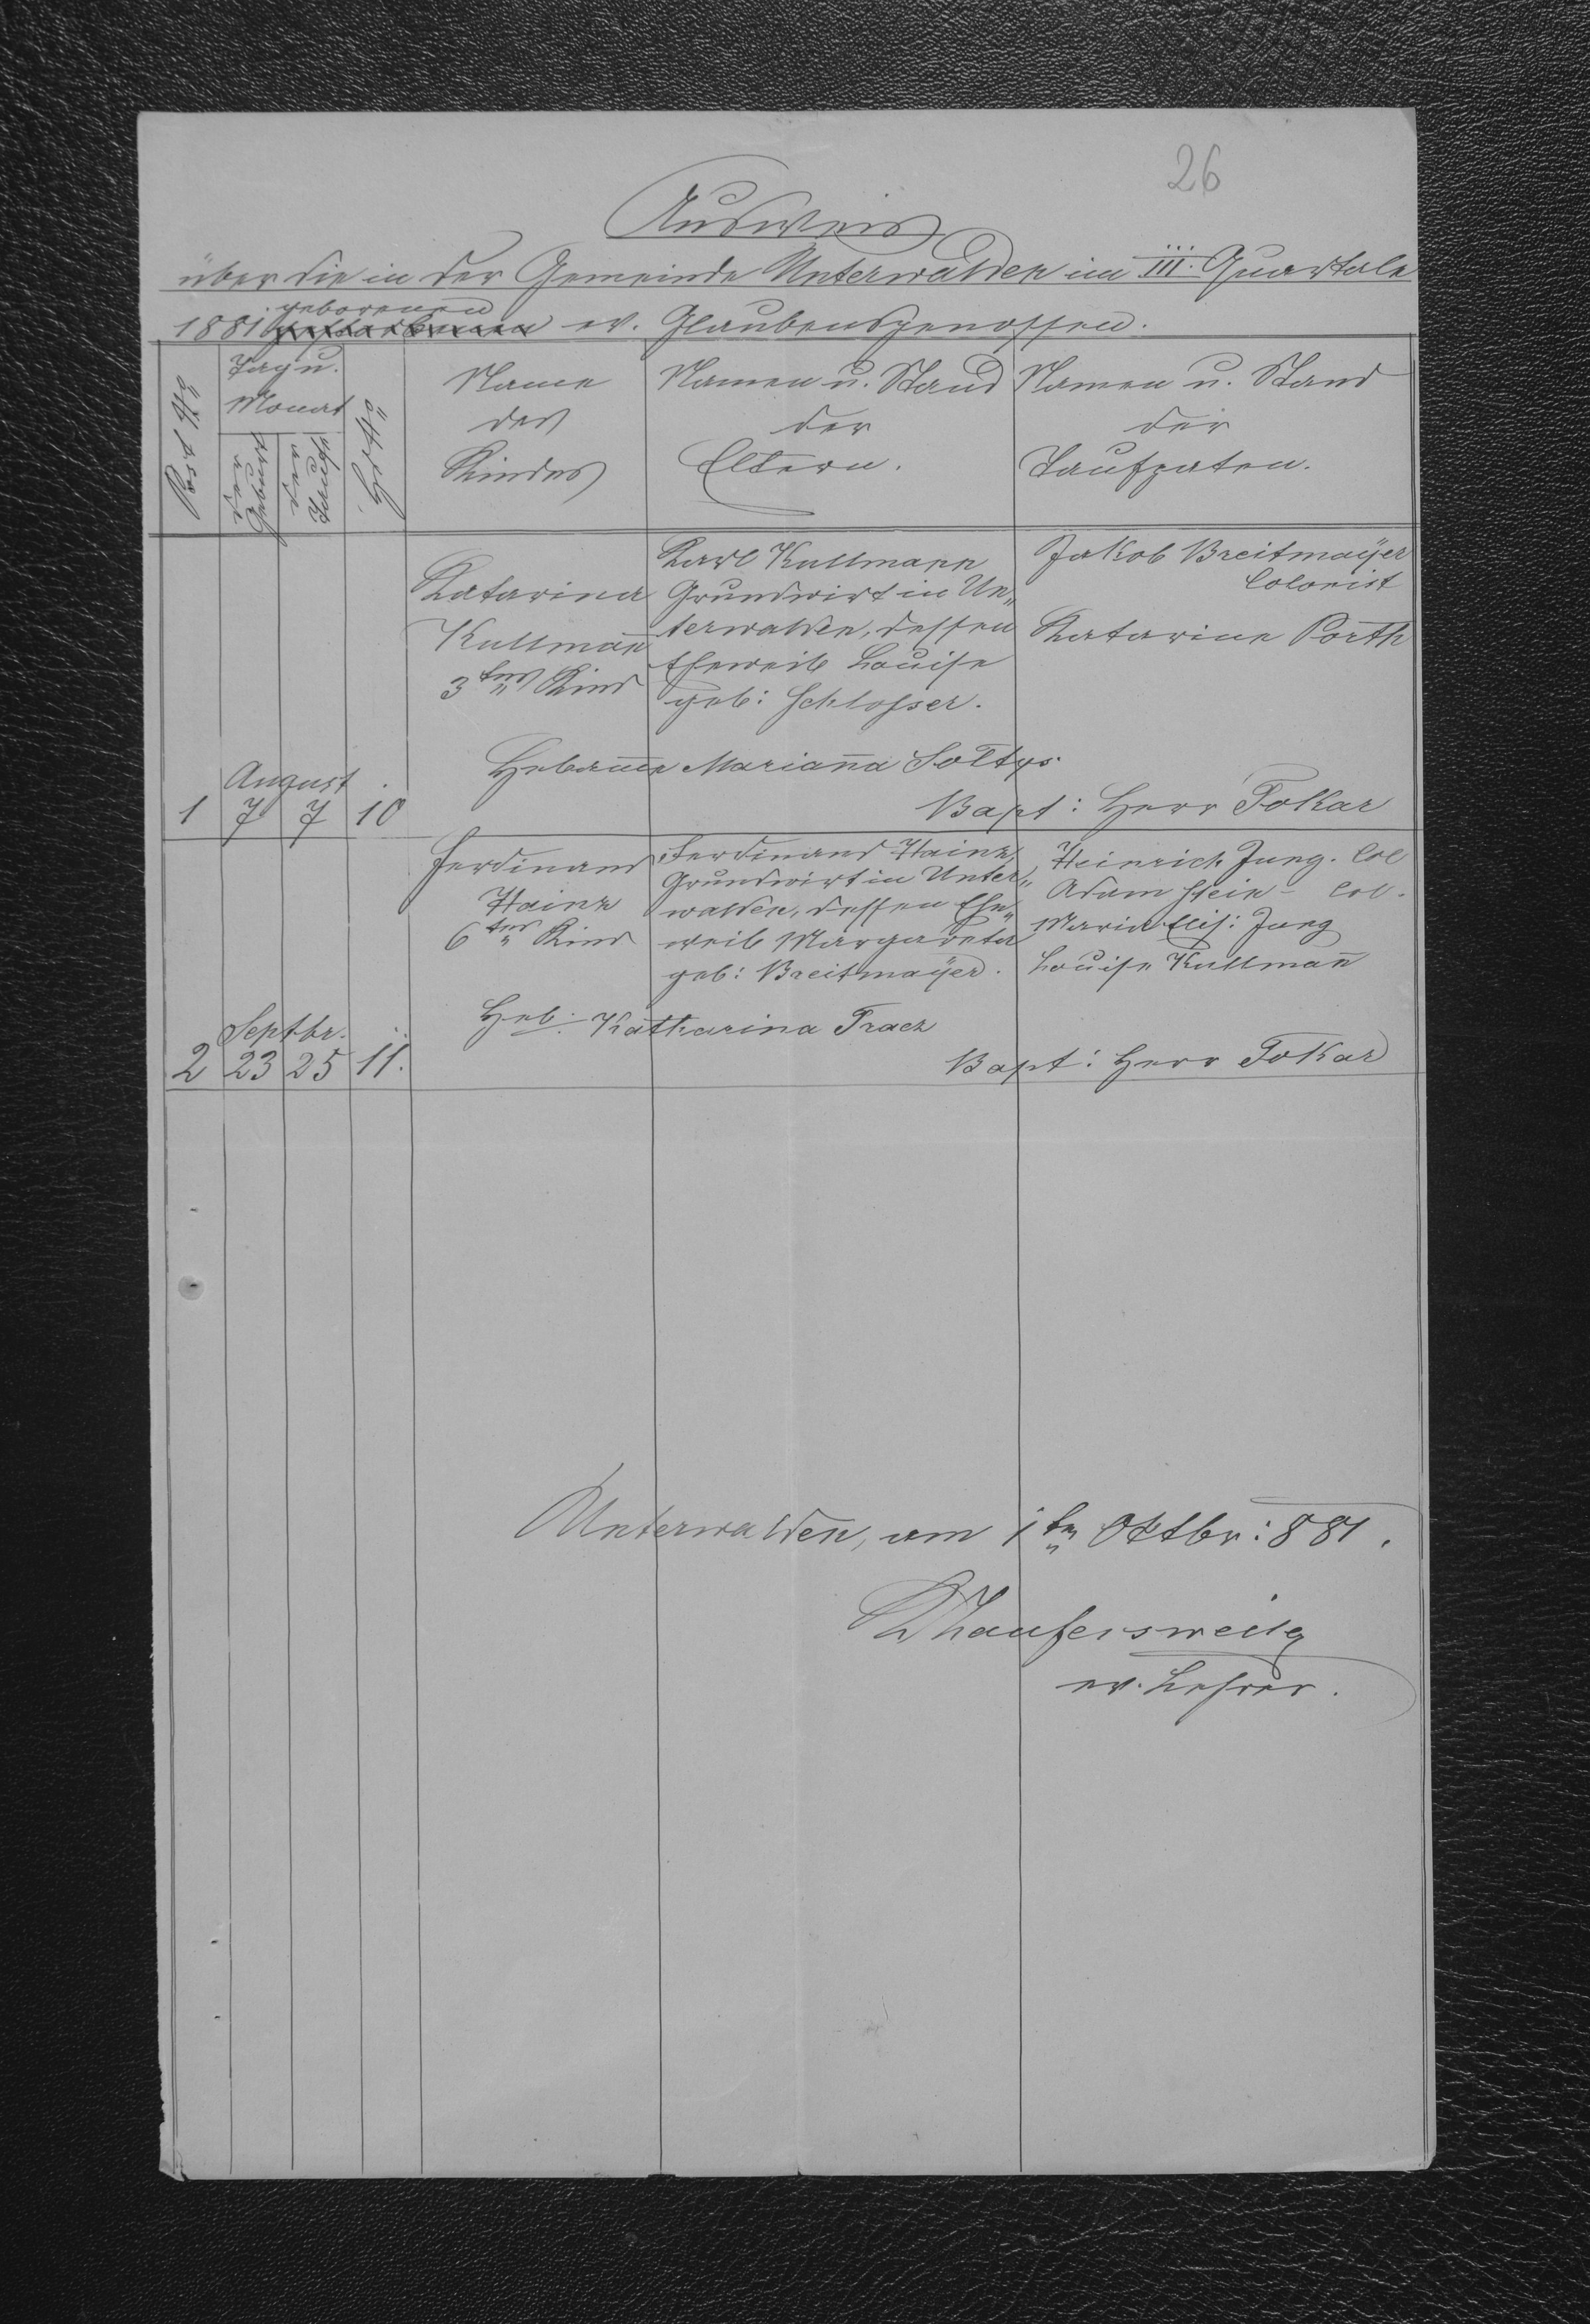 26
Ausweis
über die in der Gemeinde Unterwalden im III. Quartale
geborenen
1881 gestorbenen ev. Glaubensgenossen.
Post No
Tag u.
Monat
der
Geburt
der
Taufe
Hs No
Name
des
Kindes
Namen u. Stand
der
Eltern.
Namen u. Stand
der
Taufpaten.
August
1 7 7 10
Katarina
Kullmañ
3tes Kind
Karl Kullmann
Grundwirt in Un„
terwalden, dessen
Eheweib Louise
geb: Schlosser.
Jakob Breitmaÿer
Colonist
Katarina Porth
Hebam̅e Mariaña Soltys.
Bapt: Herr Tokar
Septbr.
2 23 25 11.
Ferdinand
Hainz
6tes Kind
Ferdinand Hainz,
Grundwirt in Unter„
walden, dessen Ehe„
weib Margareta
geb: Breitmaÿer.
Heinrich Jung. Col
Adam Stein - Col.
Maria Elis: Jung
Louise Kullmañ
Heb: Katharina Tracz
Bapt: Herr Tokar
Unterwalden, am 1ten Oktbr: 881.
ev. Lehrer.